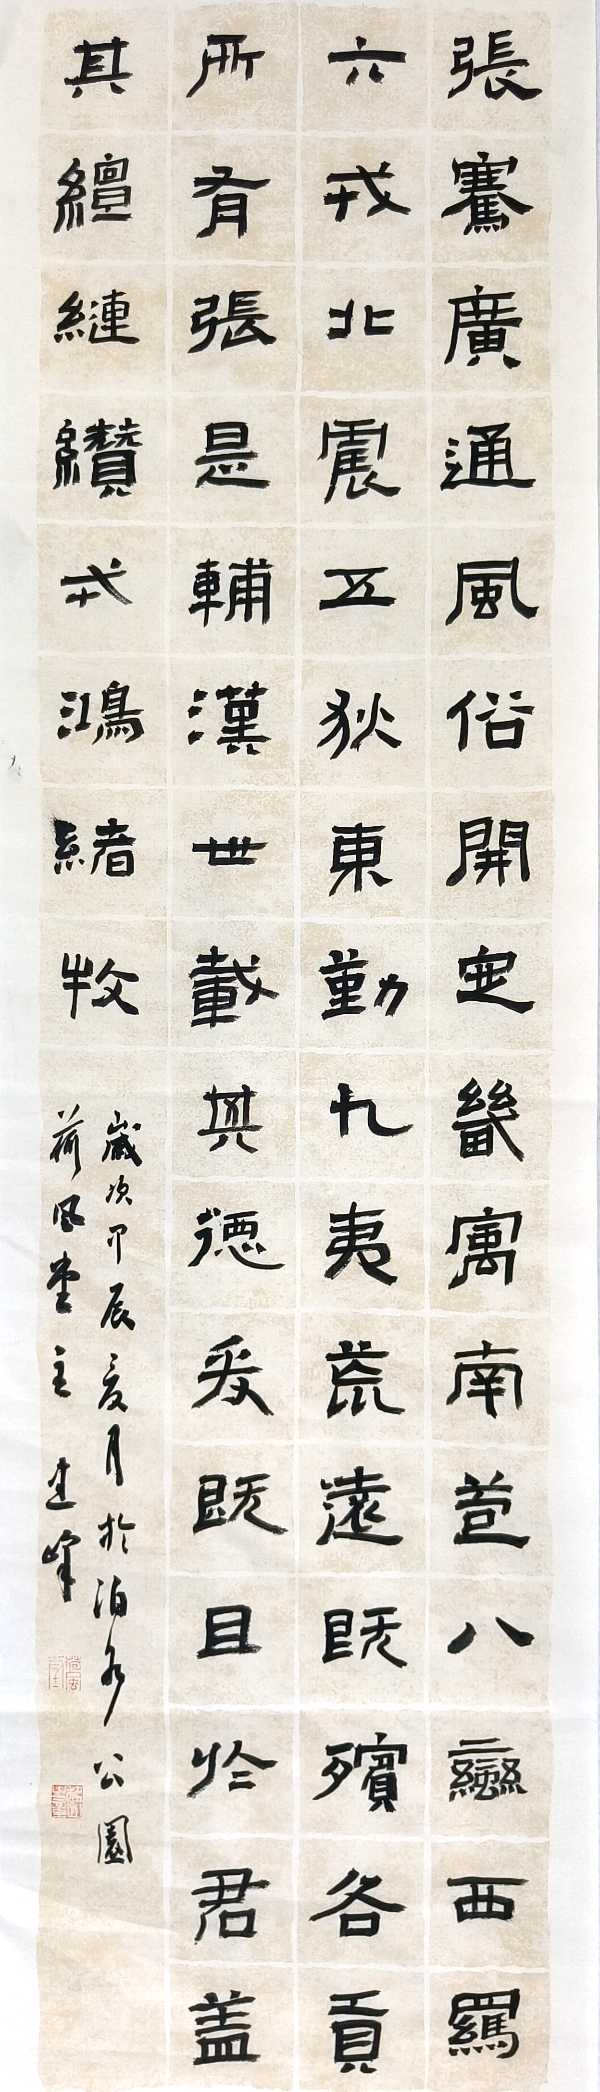 張騫廣通風俗開定畿寓南苞八蠻西羈
六戎北震五狄東勤九夷荒遠既殯各貢
所有張是輔漢世載其德爰既且於君蓋
其繵縺纘戎鴻緒牧
歲次甲辰夏月於泊水公園
荷風堂主 建峰